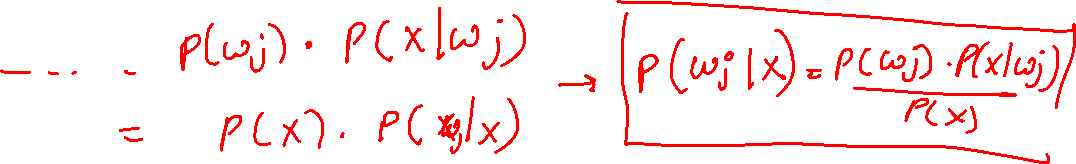 ---- P(ωj) · P(x|ωj)
= P(x) · P(ωj|x)
→ P(ωj|x) = P(ωj) · P(x|ωj) / P(x)